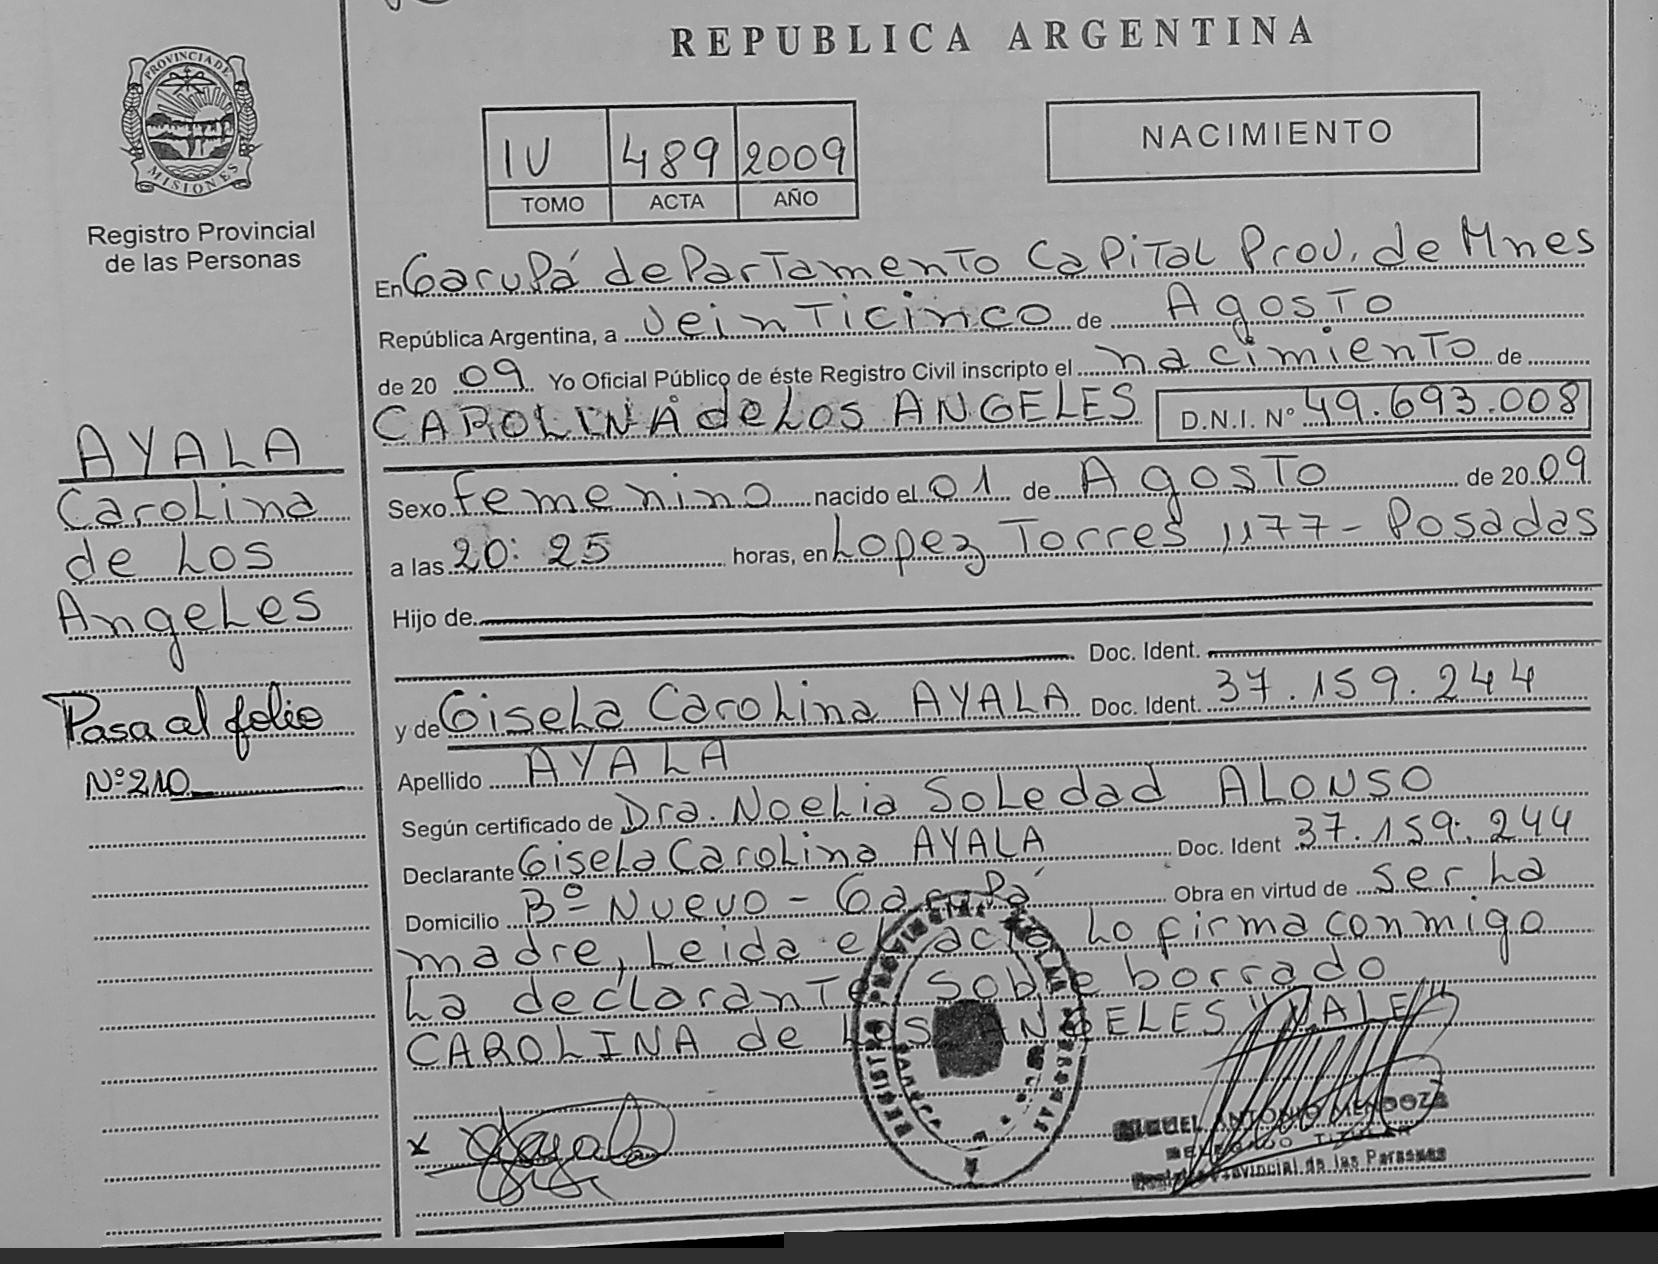 REPUBLICA ARGENTINA
PROVINCIA DE
MISIONES
Registro Provincial
de las Personas
IV 489 2009
TOMO ACTA AÑO
NACIMIENTO
En Garupá departamento Capital Prov. de Mnes
República Argentina, a veinticinco de Agosto
de 2009 Yo Oficial Público de éste Registro Civil inscripto el nacimiento de
CAROLINA de LOS ANGELES D.N.I. Nº 49.693.008
Sexo femenino nacido el 01 de Agosto de 2009
a las 20:25 horas, en Lopez Torres 1177 - Posadas
Hijo de
Doc. Ident.
y de Gisela Carolina AYALA Doc. Ident. 37.159.244
Apellido AYALA
Según certificado de Dra. Noelia Soledad ALONSO
Declarante Gisela Carolina AYALA Doc. Ident 37.159.244
Domicilio Bº Nuevo - Garupá Obra en virtud de ser la
madre, Leida el acta lo firma conmigo
la declarante. Sobre borrado
CAROLINA de LOS ANGELES "VALE"
AYALA
Carolina
de Los
Angeles
Pasa al folio
Nº 210
x Ayala
REGISTRO PROVINCIAL DE LAS PERSONAS
MIGUEL ANTONIO MENDOZA
DELEGADO TITULAR
Registro Provincial de las Personas